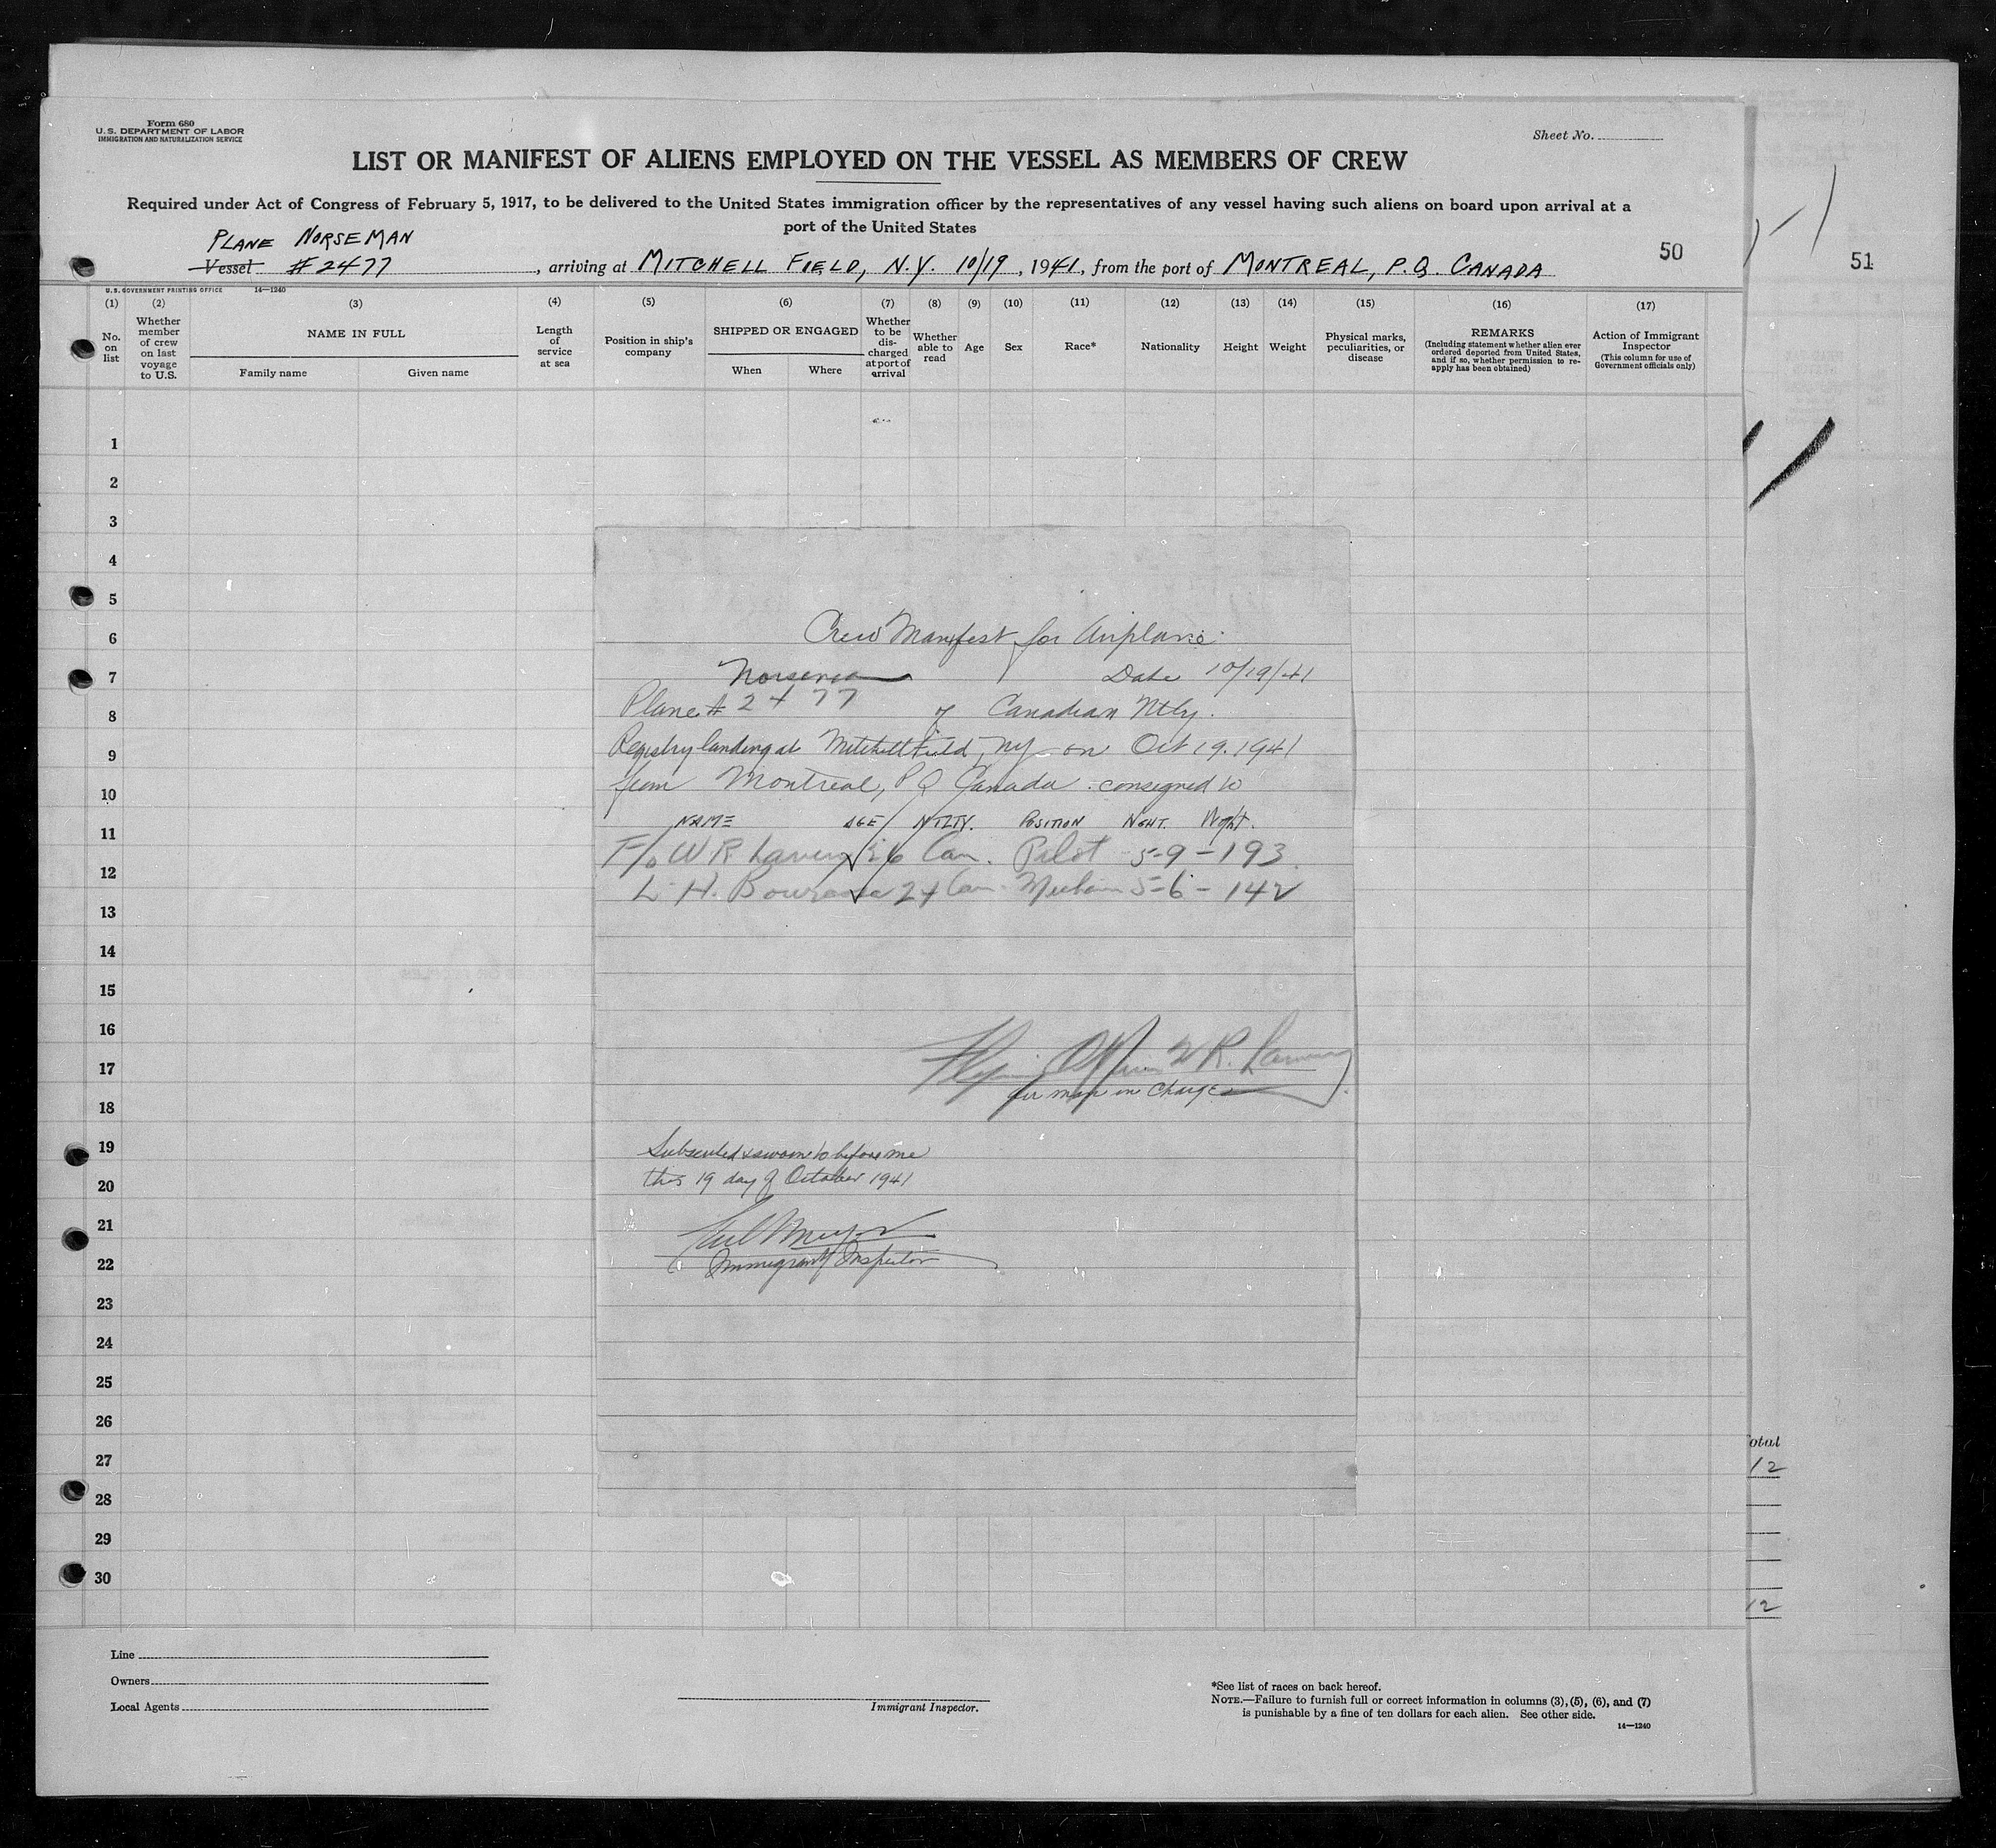 Form 680
U. S. DEPARTMENT OF LABOR
IMMIGRATION AND NATURALIZATION SERVICE
Sheet No.
LIST OR MANIFEST OF ALIENS EMPLOYED ON THE VESSEL AS MEMBERS OF CREW
Required under Act of Congress of February 5, 1917, to be delivered to the United States immigration officer by the representatives of any vessel having such aliens on board upon arrival at a
port of the United States
PLANE NORSEMAN
Vessel #2477, arriving at MITCHELL FIELD, N.Y. 10/19, 1941, from the port of MONTREAL, P.Q. CANADA
50
51
U. S. GOVERNMENT PRINTING OFFICE 14—1240
(1) (2) (3) (4) (5) (6) (7) (8) (9) (10) (11) (12) (13) (14) (15) (16) (17)
No. on list
Whether member of crew on last voyage to U.S.
NAME IN FULL
Family name
Given name
Length of service at sea
Position in ship's company
SHIPPED OR ENGAGED
When
Where
Whether to be discharged at port of arrival
Whether able to read
Age
Sex
Race*
Nationality
Height
Weight
Physical marks, peculiarities, or disease
REMARKS
(Including statement whether alien ever ordered deported from United States, and if so, whether permission to reapply has been obtained)
Action of Immigrant Inspector
(This column for use of Government officials only)
1
2
3
4
5
6
7
8
9
10
11
12
13
14
15
16
17
18
19
20
21
22
23
24
25
26
27
28
29
30
Crew Manifest for Airplane
Norseman Date 10/19/41
Plane # 2477 of Canadian Ntly.
Registry landing at Mitchell Field, NY on Oct 19. 1941
from Montreal, P Q Canada . consigned to
NAME AGE NTLTY. POSITION HGHT. Wght.
F/o W R 26 Can. Pilot 5-9-193
L. H. 24 Can. 5-6-142
Flying Officer W R.
Air man in Charge
Subscribed & sworn to before me
this 19 day of October 1941
Immigrant Inspector
otal
12
12
Line
Owners
Local Agents
Immigrant Inspector.
*See list of races on back hereof.
NOTE.—Failure to furnish full or correct information in columns (3), (5), (6), and (7)
is punishable by a fine of ten dollars for each alien. See other side.
14—1240